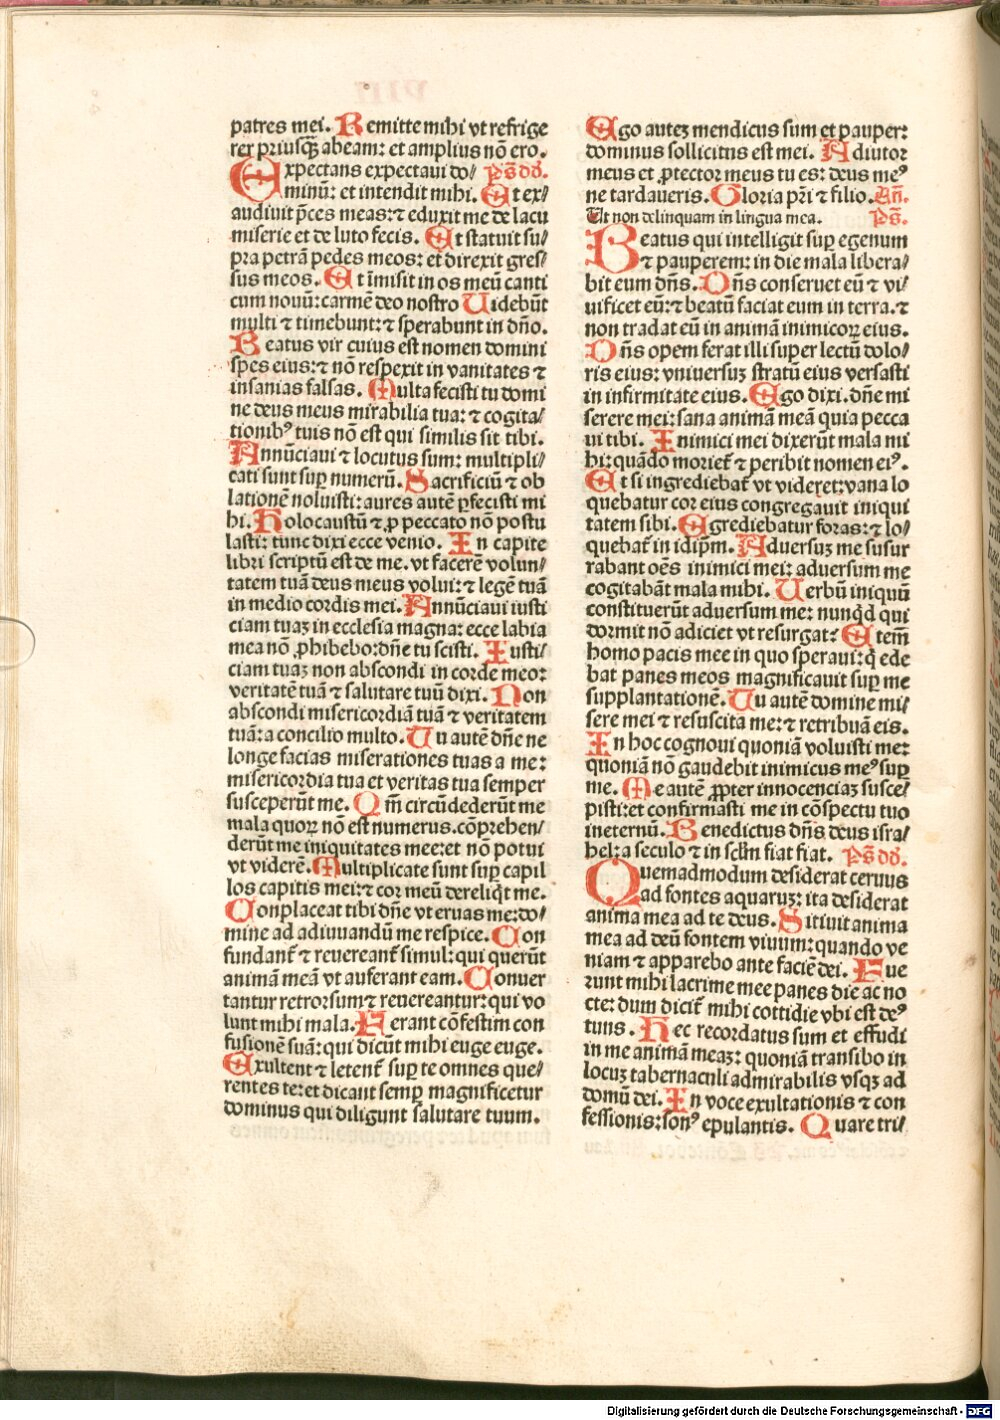 patres mei. Remitte mihi vt refrige
rer priusq̄ꝫ abeam: et amplius nō ero.
Expectans expectaui do/ Ps̄ dd̄.
minū: et intendit mihi. Et ex/
audiuit p̄ces meas: ⁊ eduxit me de lacu
miserie et de luto fecis. Et statuit su/
pra petrā pedes meos: et direxit gres/
sus meos. Et īmisit in os meū canti
cum nouū: carmē deo nostro Uidebūt
multi ⁊ timebunt: ⁊ sperabunt in dn̄o.
Beatus vir cuius est nomen domini
spes eius: ⁊ nō respexit in vanitates ⁊
insanias falsas. Multa fecisti tu domi
ne deus meus mirabilia tua: ⁊ cogita/
tionibꝰ tuis nō est qui similis sit tibi.
Annūciaui ⁊ locutus sum: multipli/
cati sunt suꝑ numerū. Sacrificiū ⁊ ob
lationē noluisti: aures autē ꝑfecisti mi
hi. Holocaustū ⁊ ꝓ peccato nō postu
lasti: tunc dixi ecce venio. In capite
libri scriptū est de me. vt facerē volun/
tatem tuā deus meus volui: ⁊ legē tuā
in medio cordis mei. Annūciaui iusti
ciam tuaꝫ in ecclesia magna: ecce labia
mea nō ꝓhibebo: dn̄e tu scisti. Iusti/
ciam tuaꝫ non abscondi in corde meo:
veritatē tuā ⁊ salutare tuū dixi. Non
abscondi misericordiā tuā ⁊ veritatem
tuā: a concilio multo. Tu autē dn̄e ne
longe facias miserationes tuas a me:
misericordia tua et veritas tua semper
susceperūt me. Qm̄ circūdederūt me
mala quoꝝ nō est numerus. cōprehen/
derūt me iniquitates mee: et nō potui
vt viderē. Multiplicate sunt suꝑ capil
los capitis mei: ⁊ cor meū dereliq̄t me.
Conplaceat tibi dn̄e vt eruas me: do/
mine ad adiuuandū me respice. Con
fundant̄ ⁊ reuereant̄ simul: qui querūt
animā meā vt auferant eam. Conuer
tantur retrorsum ⁊ reuereantur: qui vo
lunt mihi mala. Ferant cōfestim con
fusionē suā: qui dicūt mihi euge euge.
Exultent ⁊ letent̄ suꝑ te omnes que/
rentes te: et dicant semꝑ magnificetur
dominus qui diligunt salutare tuum.
Ego auteꝫ mendicus sum et pauper:
dominus sollicitus est mei. Adiutor
meus et ꝓtector meus tu es: deus meꝰ
ne tardaueris. Gloria pr̄i ⁊ filio. An̄.
Ut non delinquam in lingua mea. Ps̄.
Beatus qui intelligit suꝑ egenum
⁊ pauperem: in die mala libera/
bit eum dn̄s. Dn̄s conseruet eū ⁊ vi/
uificet eū: ⁊ beatū faciat eum in terra. ⁊
non tradat eū in animā inimicoꝝ eius.
Dn̄s opem ferat illi super lectū dolo/
ris eius: vniuersuꝫ stratū eius versasti
in infirmitate eius. Ego dixi. dn̄e mi
serere mei: sana animā meā quia pecca
ui tibi. Inimici mei dixerūt mala mi
hi: quādo moriet̄ ⁊ peribit nomen eiꝰ.
Et si ingrediebat̄ vt videret: vana lo
quebatur cor eius congregauit iniqui
tatem sibi. Egrediebatur foras: ⁊ lo/
quebat̄ in idip̄m. Aduersuꝫ me susur
rabant oēs inimici mei: aduersum me
cogitabāt mala mihi. Uerbū iniquū
constituerūt aduersum me: nunq̄d qui
dormit nō adiciet vt resurgat: Etem̄
homo pacis mee in quo speraui: q̄ ede
bat panes meos magnificauit suꝑ me
supplantationē. Tu autē domine mi/
sere mei ⁊ resuscita me: ⁊ retribuā eis.
In hoc cognoui quoniā voluisti me:
quoniā nō gaudebit inimicus meꝰ suꝑ
me. Me autē ꝓpter innocenciaꝫ susce/
pisti: et confirmasti me in cōspectu tuo
ineternū. Benedictus dn̄s deus isra/
hel: a seculo ⁊ in sclm̄ fiat fiat. Ps̄ dd̄.
Quemadmodum desiderat ceruus
ad fontes aquaruꝫ: ita desiderat
anima mea ad te deus. Sitiuit anima
mea ad deū fontem viuum: quando ve
niam ⁊ apparebo ante faciē dei. Fue
runt mihi lacrime mee panes die ac no
cte: dum dicit̄ mihi cottidie vbi est deꝰ
tuus. Hec recordatus sum et effudi
in me animā meaꝫ: quoniā transibo in
locuꝫ tabernaculi admirabilis vsqꝫ ad
domū dei. In voce exultationis ⁊ con
fessionis: sonꝰ epulantis. Quare tri/
Digitalisierung gefördert durch die Deutsche Forschungsgemeinschaft - DFG